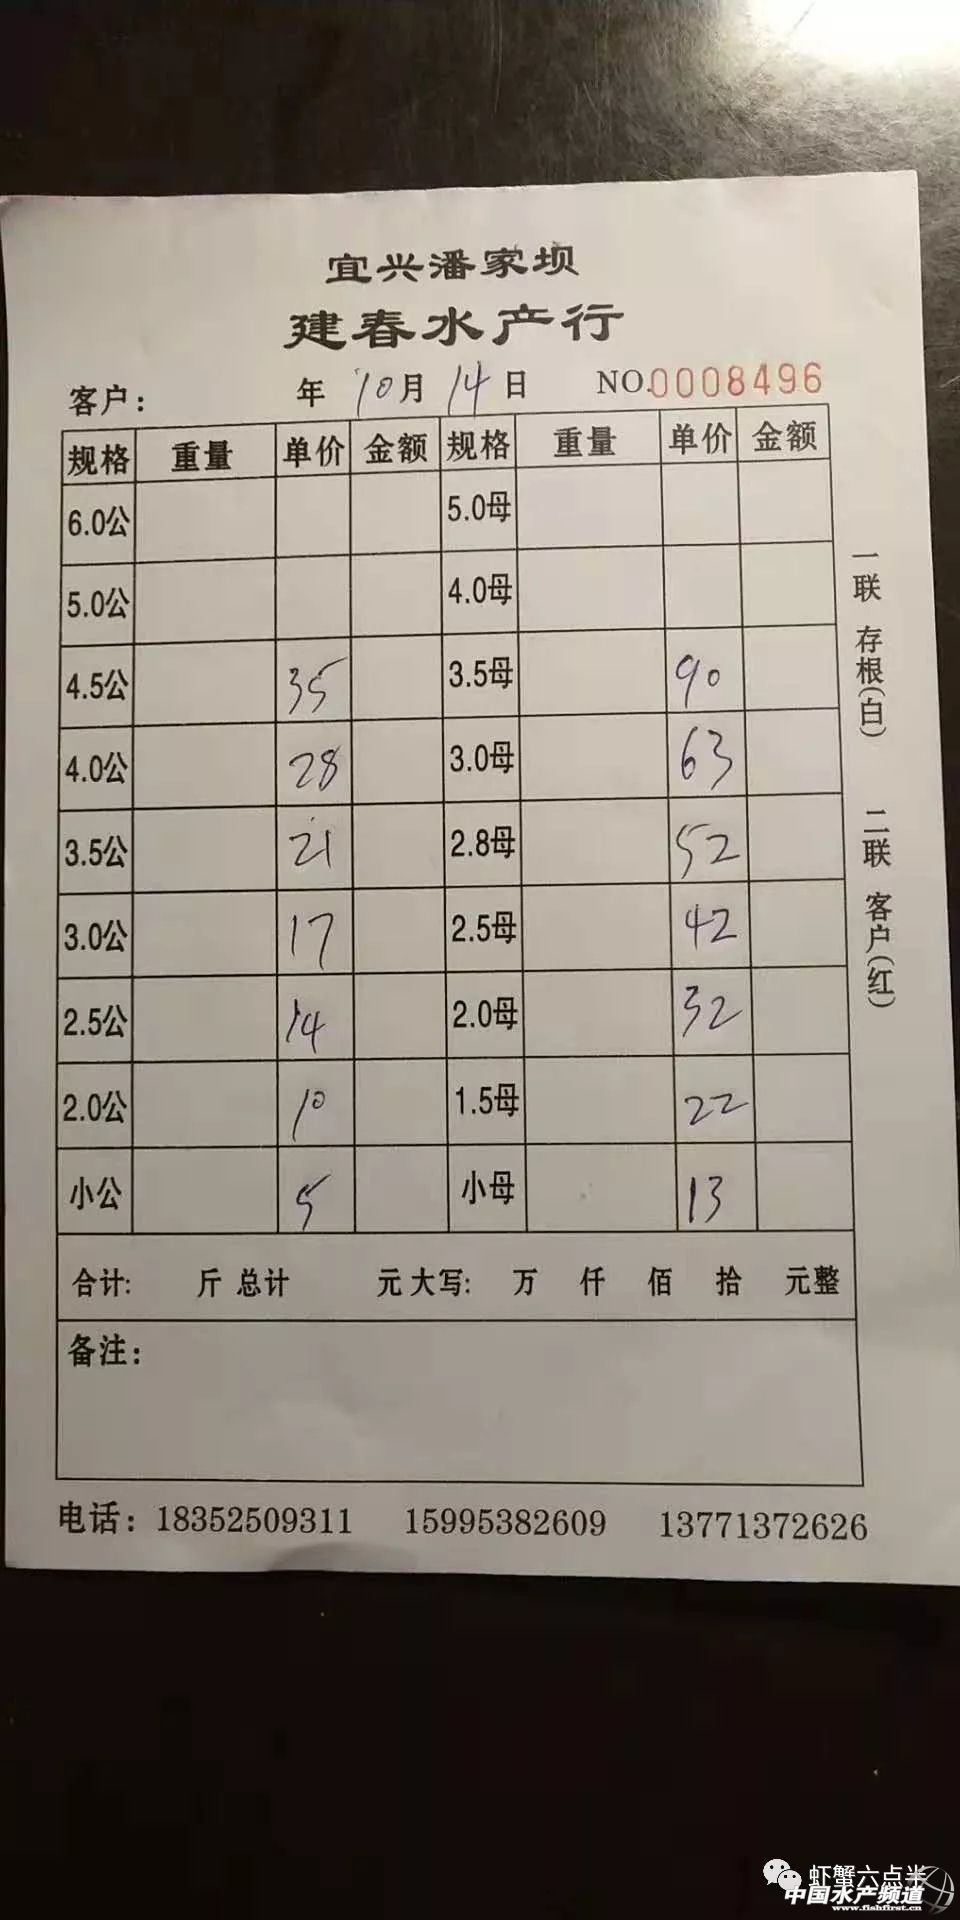 宜兴潘家坝
建春水产行
客户： 年 10月 14日 NO.0008496
规格 重量 单价 金额 规格 重量 单价 金额
6.0公 5.0母
5.0公 4.0母
4.5公 35 3.5母 90
4.0公 28 3.0母 63
3.5公 21 2.8母 52
3.0公 17 2.5母 42
2.5公 14 2.0母 32
2.0公 10 1.5母 22
小公 5 小母 13
合计: 斤 总计 元 大写: 万 仟 佰 拾 元整
备注：
电话：18352509311 15995382609 13771372626
一联 存根(白) 二联 客户(红)
虾蟹六点半
中国水产频道
www.fishfirst.cn